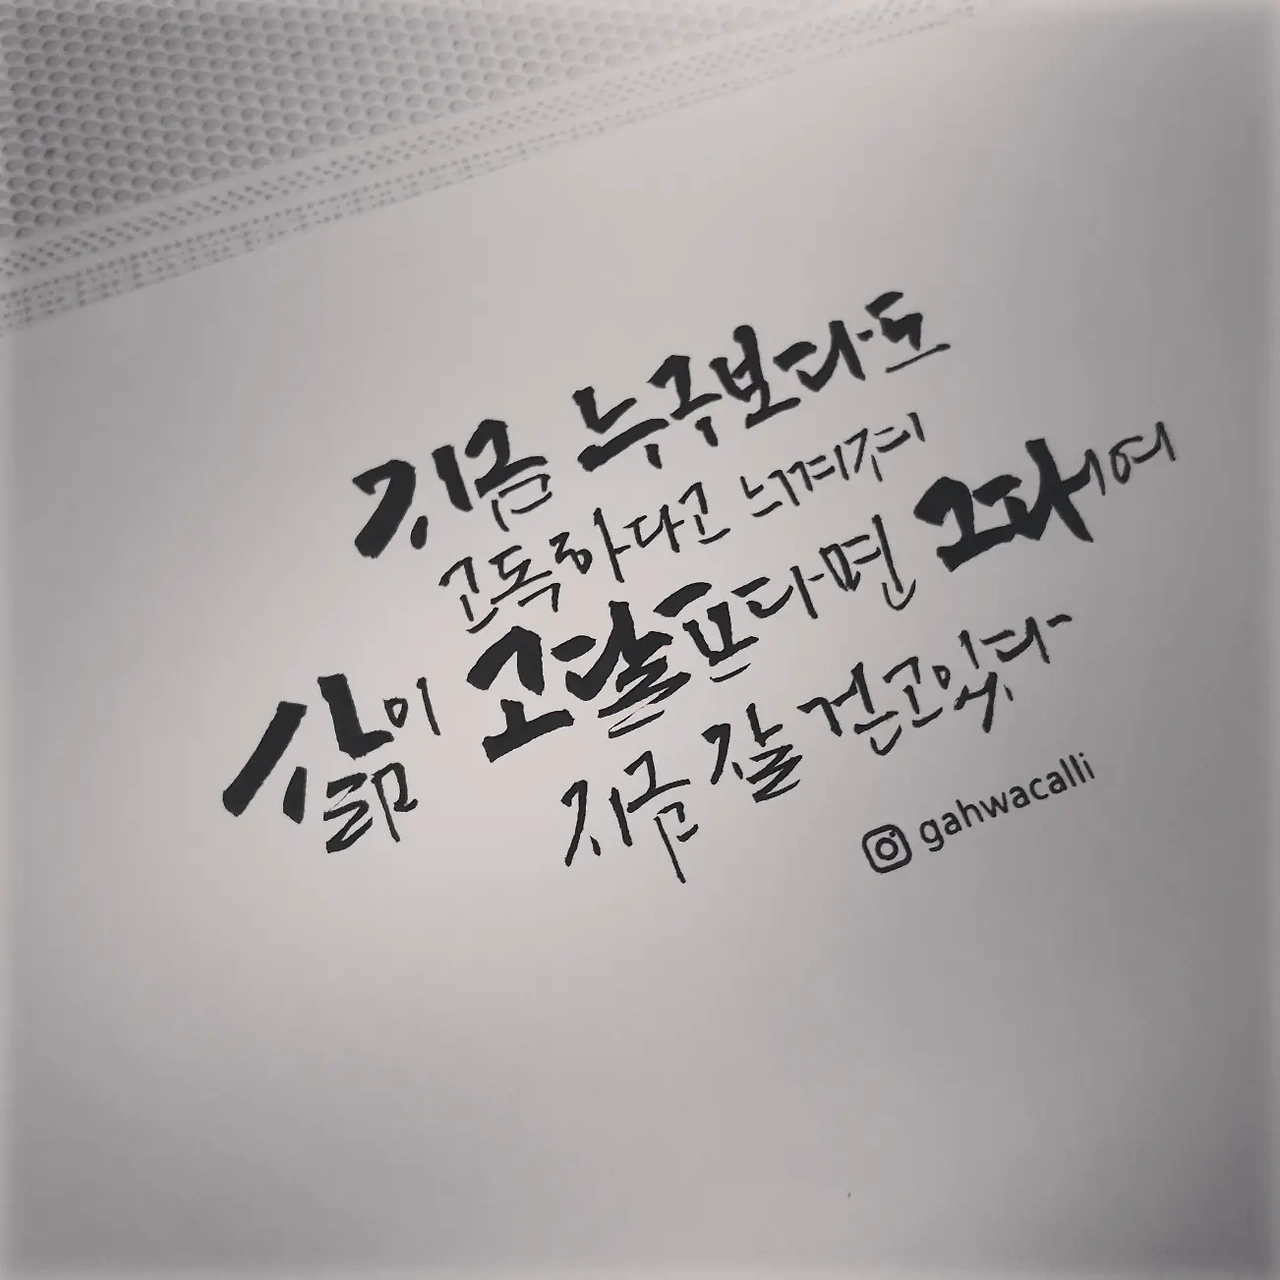 지금 누구보다도
고독하다고 느껴져
삶이 고달프다면 그대여
지금 잘 걷고있다
gahwacalli